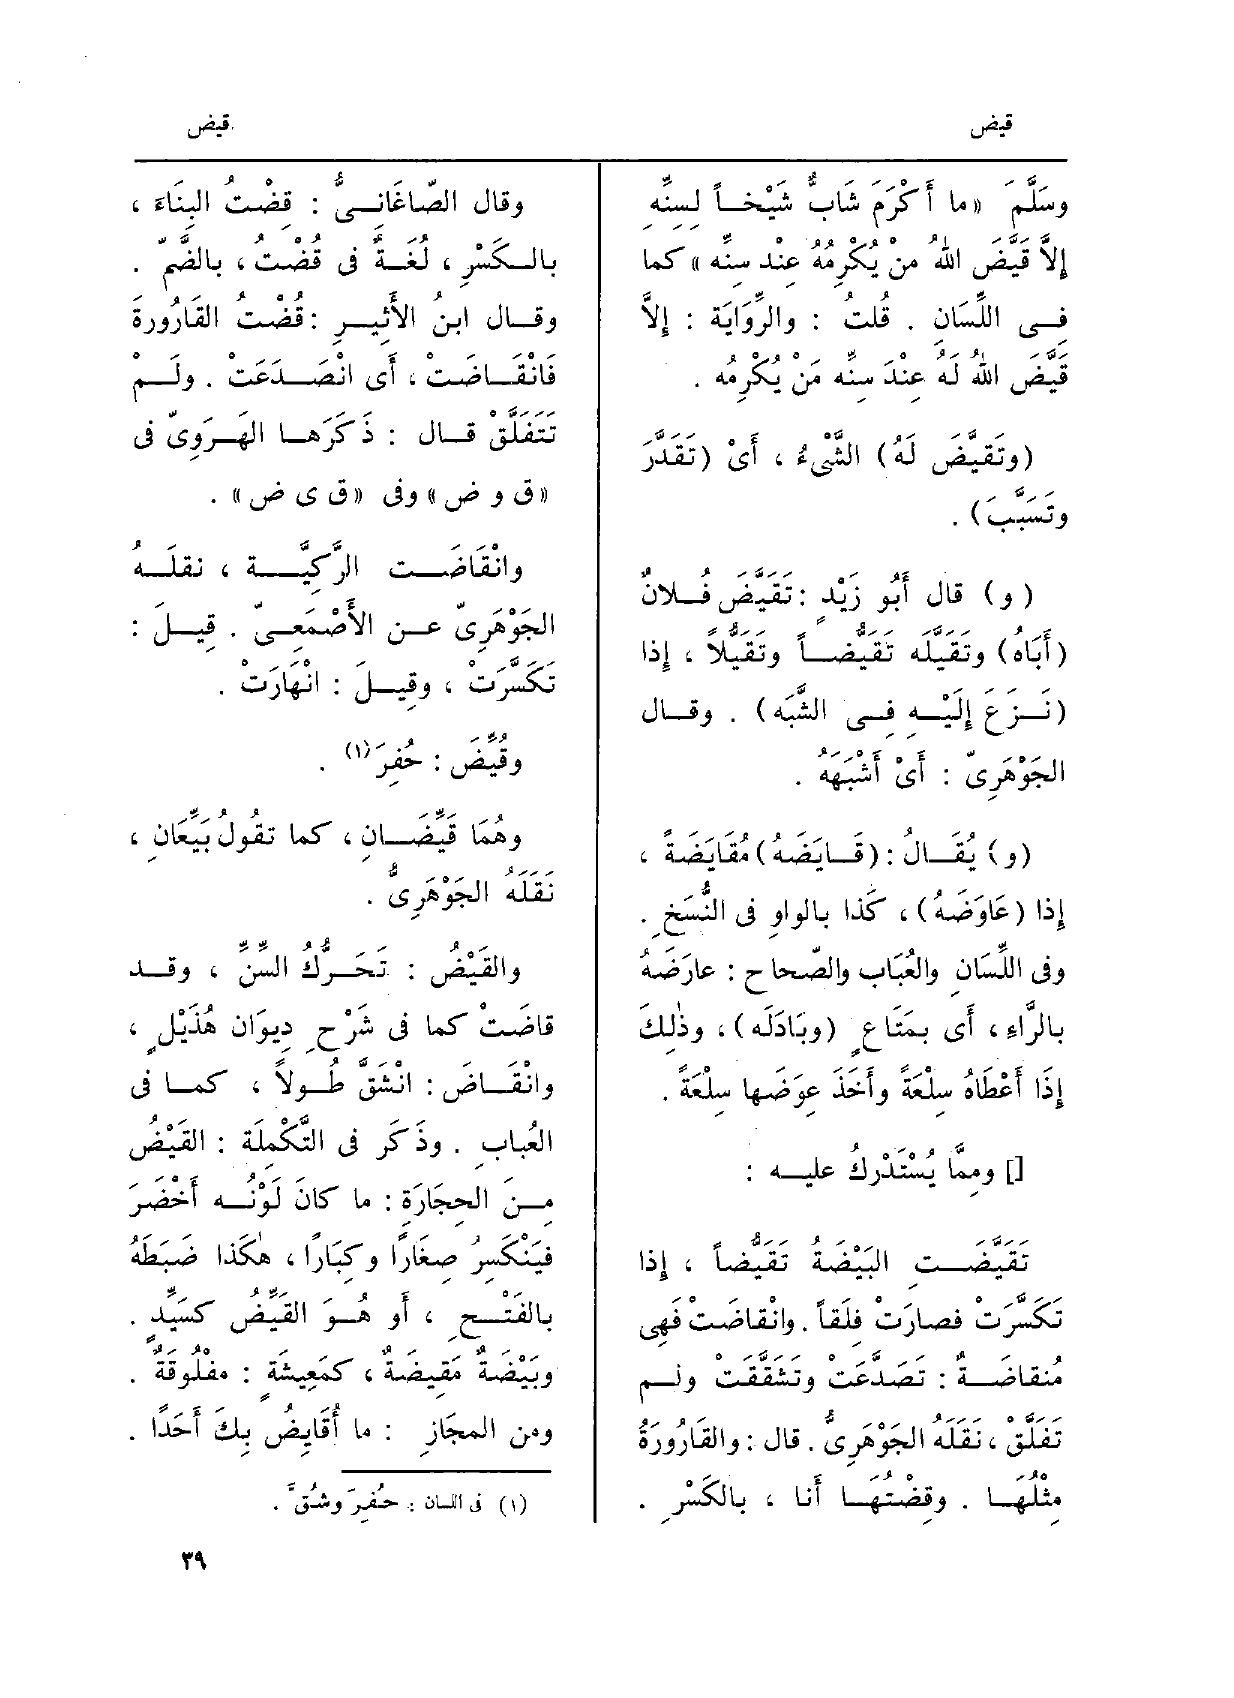 قيض
قيض
وسَلَّمَ «ما أَكْرَمَ شَابٌّ شَيْخاً لِسِنِّه
إِلاَّ قَيَّضَ اللهُ مَنْ يُكْرِمُهُ عِنْد سِنِّه» كما
فى اللِّسَانِ . قُلتُ : والرِّوَايَة : إِلاَّ
قَيَّضَ اللهُ لَهُ عِنْدَ سِنِّه مَنْ يُكْرِمُه .
(وتَقَيَّضَ لَهُ) الشَّىْءُ ، أَىْ (تَقَدَّرَ
وتَسَبَّبَ) .
( و) قال أَبُو زَيْدٍ : تَقَيَّضَ فُلانٌ
(أَبَاهُ) وتَقَيَّلَه تَقَيُّضاً وتَقَيُّلاً ، إِذا
(نَزَعَ إِلَيْهِ فِى الشَّبَه) . وقال
الجَوْهَرِىّ : أَىْ أَشْبَهَهُ .
(و) يُقَالُ : (قَايَضَهُ) مُقَايَضَةً ،
إِذا (عَاوَضَهُ) ، كَذا بالواوِ فى النُّسَخِ .
وفى اللِّسَانِ والعُبَاب والصّحاح : عارَضَهُ
بالرَّاءِ ، أَى بمَتَاعٍ (وبَادَلَه) ، وذٰلِكَ
إِذَا أَعْطَاهُ سِلْعَةً وأَخَذَ عِوَضَها سِلْعَةً .
[] ومِمَّا يُسْتَدْرَكُ عليه :
تَقَيَّضَت البَيْضَةُ تَقَيُّضاً ، إِذا
تَكَسَّرَتْ فصارَتْ فِلَقاً . وانْقاضَتْ فهِى
مُنقاضَةٌ : تَصَدَّعَتْ وتَشَقَّقَتْ ولم
تَفَلَّقْ ، نَقَلَه الجَوْهَرِىُّ . قال : والقَارُورَةُ
مِثْلُهَا . وقِضْتُهَا أَنا ، بالكَسْرِ .
وقال الصّاغَانِىُّ : قِضْتُ البِنَاءَ ،
بالكَسْرِ ، لُغَةٌ فى قُضْتُ ، بالضَّمِّ .
وقال ابنُ الأَثِيرِ : قُضْتُ القَارُورَةَ
فَانْقَاضَتْ ، أَى انْصَدَعَتْ . ولَمْ
تَتَفَلَّقْ قال : ذَكَرَها الهَرَوِىّ فى
«ق و ض» وفى «ق ى ض» .
وانْقَاضَت الرَّكِيَّة ، نقلَهُ
الجَوْهَرِىّ عن الأَصْمَعِىّ . قِيلَ :
تَكَسَّرَتْ ، وقِيلَ : انْهَارَتْ .
وقُيِّضَ : حُفِرَ(١) .
وهُمَا قَيِّضَانِ ، كما تقُولُ بَيِّعَانِ ،
نَقَلَهُ الجَوْهَرِىُّ .
والقَيْضُ : تَحَرُّكُ السِّنِّ ، وقد
قاضَتْ كما فى شَرْحِ دِيوَان هُذَيْلٍ ،
وانْقَاضَ : انْشَقَّ طُولاً ، كما فى
العُبابِ . وذَكَر فى التَّكْمِلَة : القَيْضُ
مِنَ الحِجَارَة : ما كانَ لَوْنُه أَخْضَرَ
فيَنْكَسِرُ صِغَارًا وكِبَارًا ، هٰكَذا ضَبَطَهُ
بالفَتْحِ ، أَو هُوَ القَيِّضُ كسَيِّدٍ .
وبَيْضَةٌ مَقِيضَةٌ ، كمَعِيشَةٍ : مفْلُوقَةٌ .
ومن المجَازِ : ما أُقَايِضُ بِكَ أَحَدًا .
(١) فى اللسان : حُفِرَ وشُقّ .
٣٩